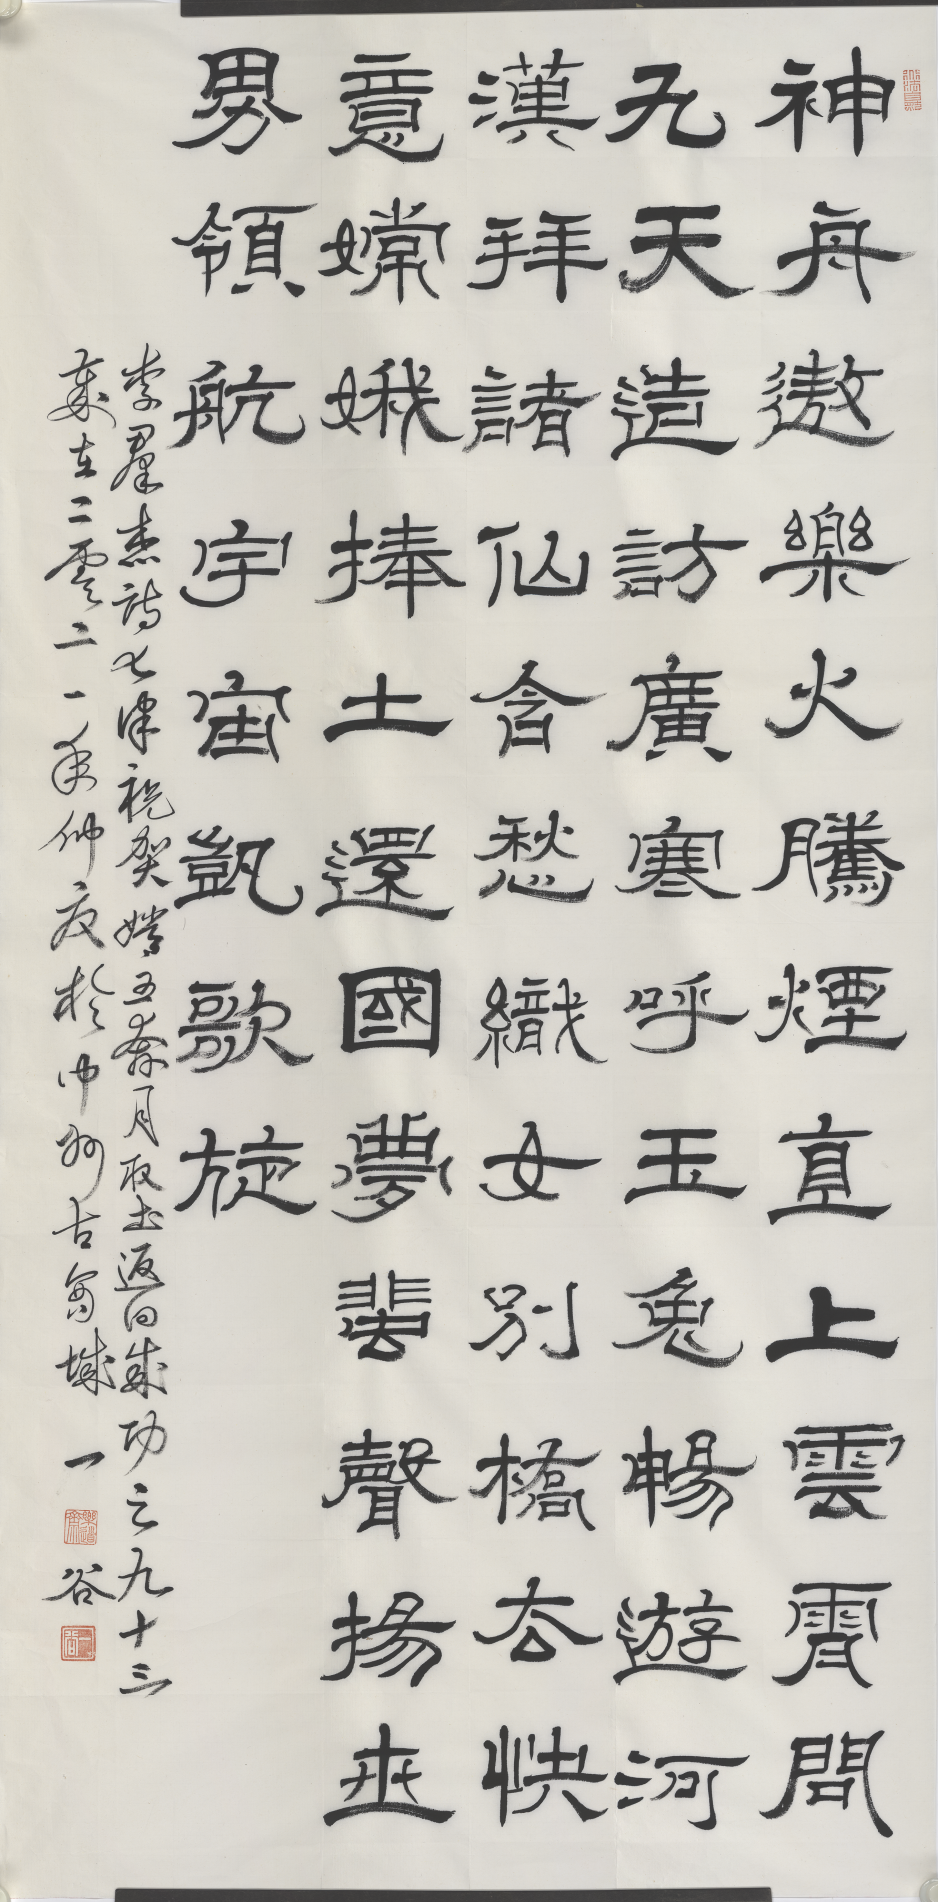 神舟遨樂火騰煙直上雲霄問
九天造訪廣寒呼玉兔暢遊河
漢拜諸仙含愁織女別橋去快
意嫦娥捧土還國夢蜚聲揚世
界領航宇宙凱歌旋
李羣杰詩七律祝贺嫦五奔月取土返回成功之九十三
歲在二零二一年仲夏於中州古商城一谷